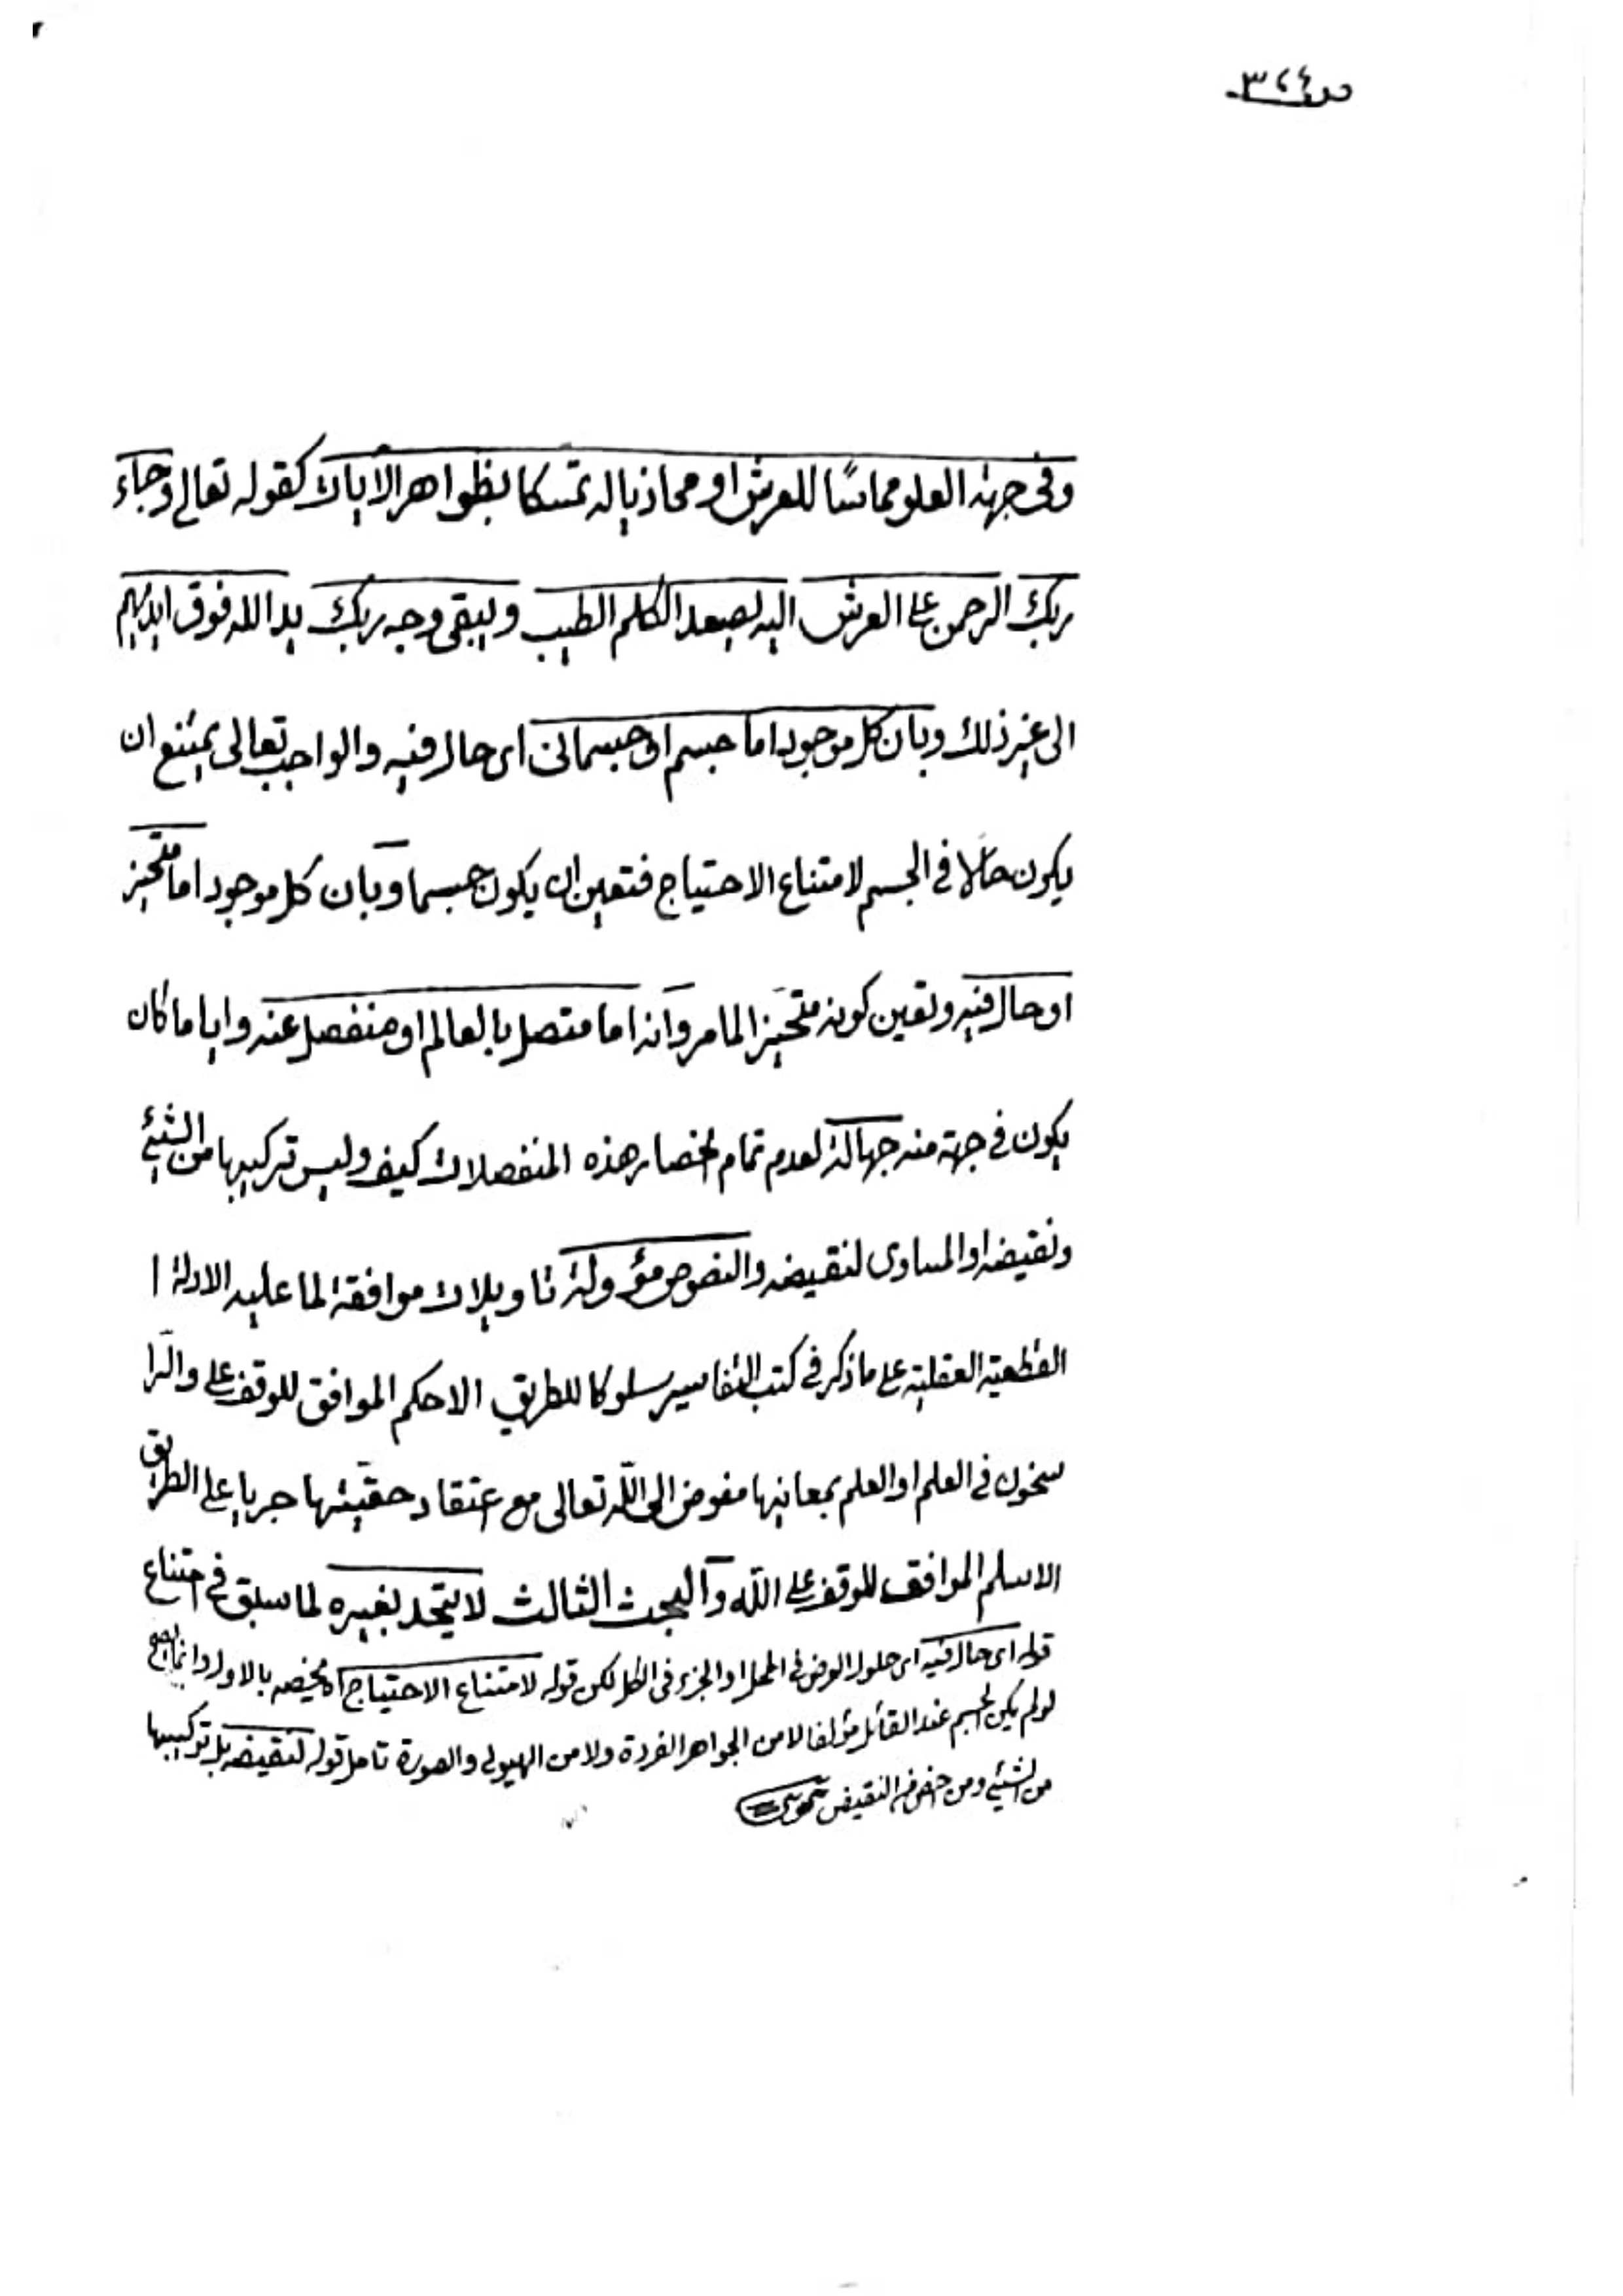 ص ٣٢٤
وفى جهة العلو مماسًا للعرش او محاذيا له تمسكا بظواهر الأيات كقوله تعالى وجاء
ربك الرحمن على العرش اليه يصعد الكلم الطيب ويبقى وجه ربك يد الله فوق ايديهم
الى غير ذلك وبان كل موجود اما جسم او جسمانى اى حال فيه والواجب تعالى يمتنع ان
يكون حالا فى الجسم لامتناع الاحتياج فتعين ان يكون جسما وبان كل موجود اما متحيز
او حال فيه وتعين كونه متحيزا لما مر وانه اما متصل بالعالم او منفصل عنه وايا ما كان
يكون فى جهة منه جهالة لعدم تمام انحصار هذه المنفصلات كيف وليس تركيبها من الشئ
ونقيضه او المساوى لنقيضه والنصوص مؤولة تاويلات موافقة لما عليه الادلة ا
القطعية العقلية على ما ذكر فى كتب التفاسير سلوكا للطريق الاحكم الموافق للوقف على والرا
سخون فى العلم او العلم بمعانيها مفوض الى الله تعالى مع اعتقاد حقيتها جريا على الطريق
الاسلم الموافق للوقف على الله والبحث الثالث لا يتحد بغيره لما سبق فى امتناع
قوله اى حال فيه اى حلول العرض فى المحل او الجزء فى الكل لكن قوله لامتناع الاحتياج اه مخيصه بالاول وانما يصح
لو لم يكن الجسم عند القائل مؤلفا لا من الجواهر الفردة ولا من الهيولى والصورة تامل قوله لنقيضه بل تركيبها
من الشيئ ومن النقيض